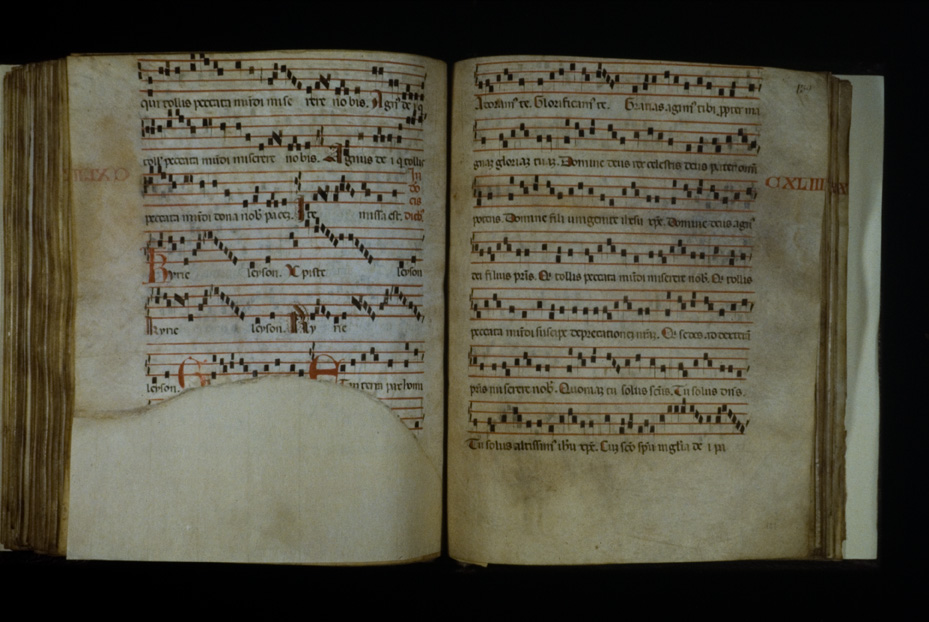 qui tollis peccata mundi mise rere nobis. Agn' dei q
toll' peccata mundi miserere nobis. Agnus dei q tollis
peccata mundi dona nob pacez. Ite missa est. dicit'
in
do
cis
Kyrie leyson. Xpiste leyson
Kyrie leyson. Ky rie
leyson. G E T in terra pax hom
Adoram' te. Glorificam' te. Gratias agim' tibi ppter ma
gnaz gloriaz tuaz. Domine deus rex celestis deus pater omni
potens. Domine fili unigenite ihesu xpe. Domine deus agn'
dei filius pris. Qi tollis peccata mundi miserere nob. Qi tollis
peccata mundi suscipe deprecationez nraz. Qi sedes ad dexteraz
pris miserere nob'. Quoniaz tu solus scus. Tu solus dns.
Tu solus altissim' ihu xpe. Cuz sco spu in glia dei pa
CXLIII